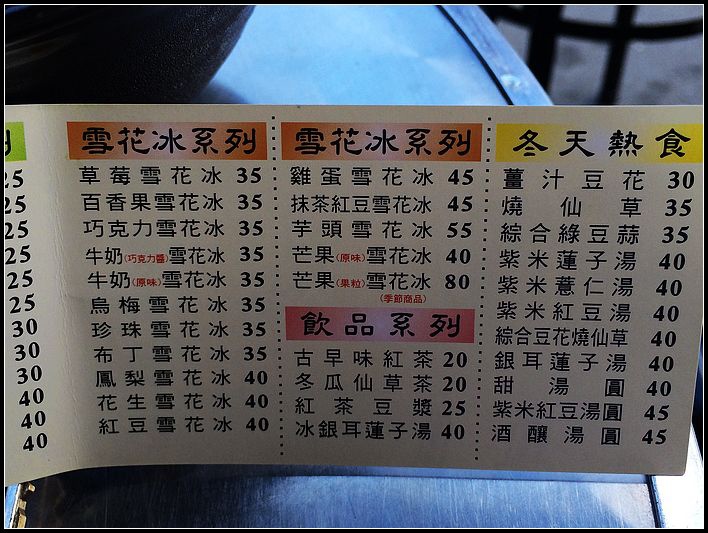 列
25
25
25
25
25
25
30
30
30
40
40
40
雪花冰系列
草莓雪花冰 35
百香果雪花冰 35
巧克力雪花冰 35
牛奶(巧克力醬)雪花冰 35
牛奶(原味)雪花冰 35
烏梅雪花冰 35
珍珠雪花冰 35
布丁雪花冰 35
鳳梨雪花冰 40
花生雪花冰 40
紅豆雪花冰 40
雪花冰系列
雞蛋雪花冰 45
抹茶紅豆雪花冰 45
芋頭雪花冰 55
芒果(原味)雪花冰 40
芒果(果粒)雪花冰 80
(季節商品)
飲品系列
古早味紅茶 20
冬瓜仙草茶 20
紅茶豆漿 25
冰銀耳蓮子湯 40
冬天熱食
薑汁豆花 30
燒仙草 35
綜合綠豆蒜 35
紫米蓮子湯 40
紫米薏仁湯 40
紫米紅豆湯 40
綜合豆花燒仙草 40
銀耳蓮子湯 40
甜湯圓 40
紫米紅豆湯圓 45
酒釀湯圓 45